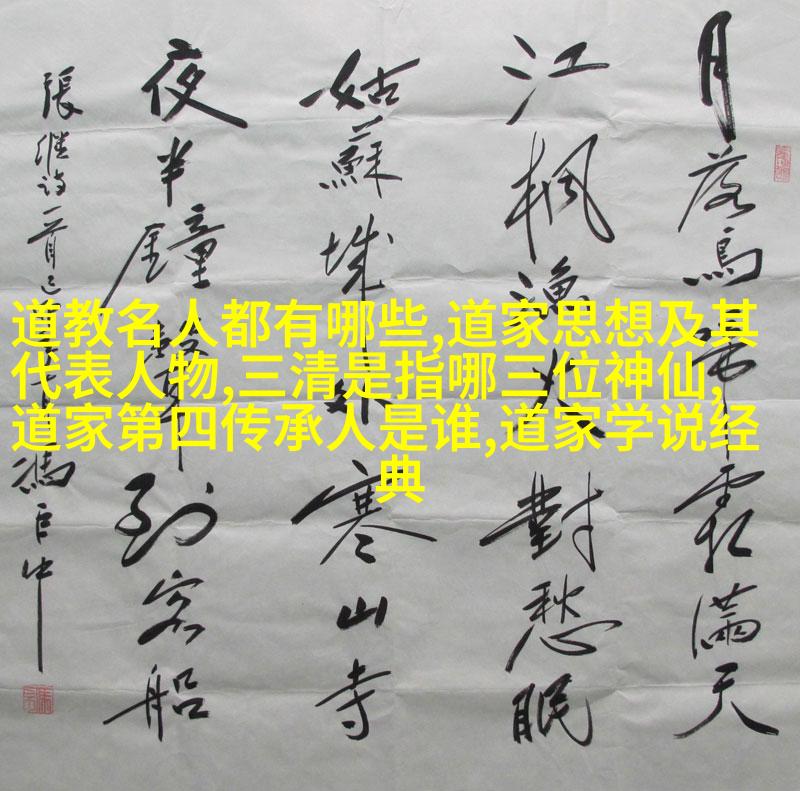 月落烏啼霜滿天
江楓漁火對愁眠
姑蘇城外寒山寺
夜半鐘聲到客船
張繼詩一首
馮臣中
道教名人都有哪些,道家思想及其
代表人物,三清是指哪三位神仙,
道家第四传承人是谁,道家学说经
典